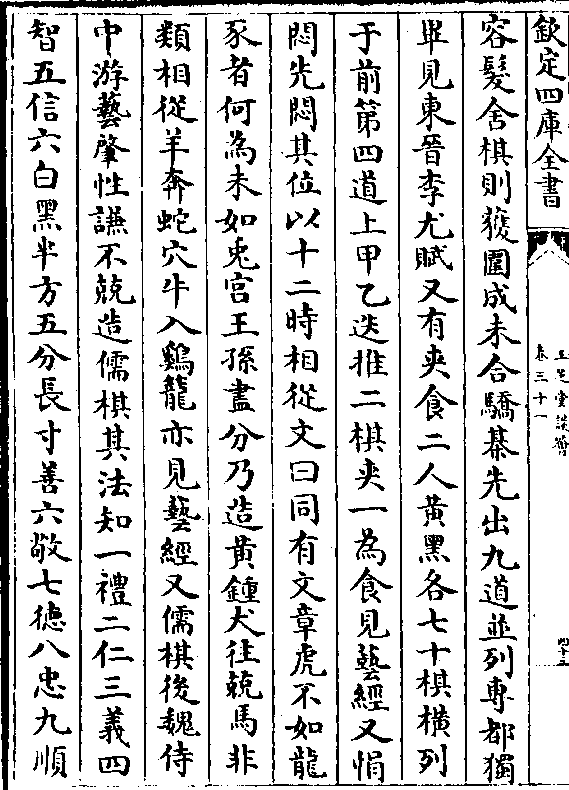 欽定四庫全書
玉芝堂談薈
卷三十一
四十三
容髮舍棋則獲圍成未合驕棊先出九道並列專都獨
畢見東晉李尤賦又有夾食二人黃黑各七十棋橫列
于前第四道上甲乙迭推二棋夾一為食見藝經又悁
悶先悶其位以十二時相從文曰同有文章虎不如龍
豕者何為未如兎宮王孫盡分乃造黃鍾犬往兢馬非
類相從羊奔蛇穴牛入鷄籠亦見藝經又儒棋後魏侍
中游藝肇性謙不兢造儒棋其法知一禮二仁三義四
智五信六白黑半方五分長寸善六敬七徳八忠九順